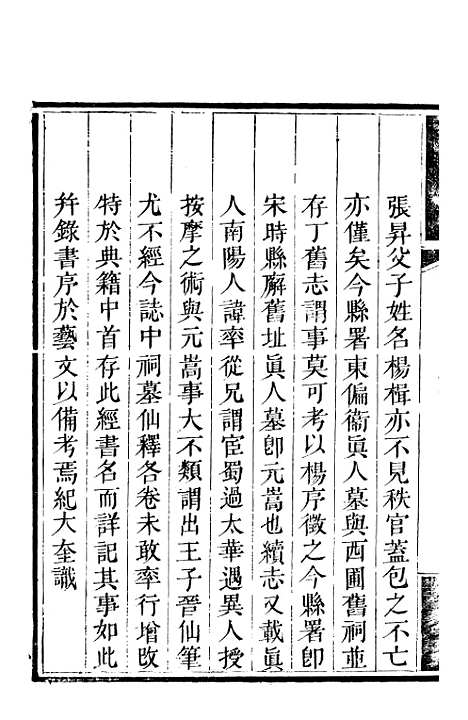 張昇父子姓名楊楫亦不見秩官蓋包之不亡
亦僅矣今縣署東偏衞眞人墓與西圃舊祠並
存丁舊志謂事莫可考以楊序徵之今縣署卽
宋時縣廨舊址眞人墓卽元嵩也續志又載眞
人南陽人諱率從兄謂宦蜀過太華遇異人授
按摩之術與元嵩事大不類謂出王子晉仙筆
尤不經今誌中祠墓仙釋各卷未敢率行增改
特於典籍中首存此經書名而詳記其事如此
幷錄書序於藝文以備考焉紀大奎識